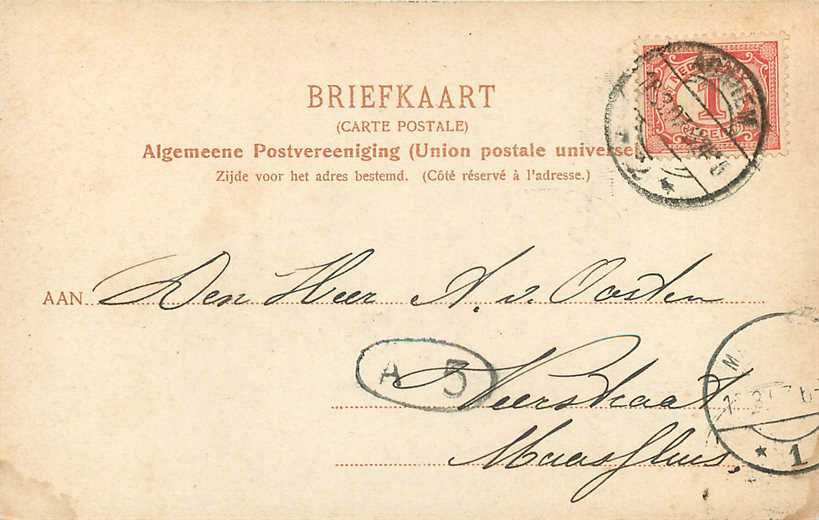 BRIEFKAART
(CARTE POSTALE)
Algemeene Postvereeniging (Union postale universe
Zijde voor het adres bestemd. (Côté réservé à l'adresse.)
1
AAN Den Heer A. v. Oosten
A 3
Veerstraat
Maassluis,
M
1